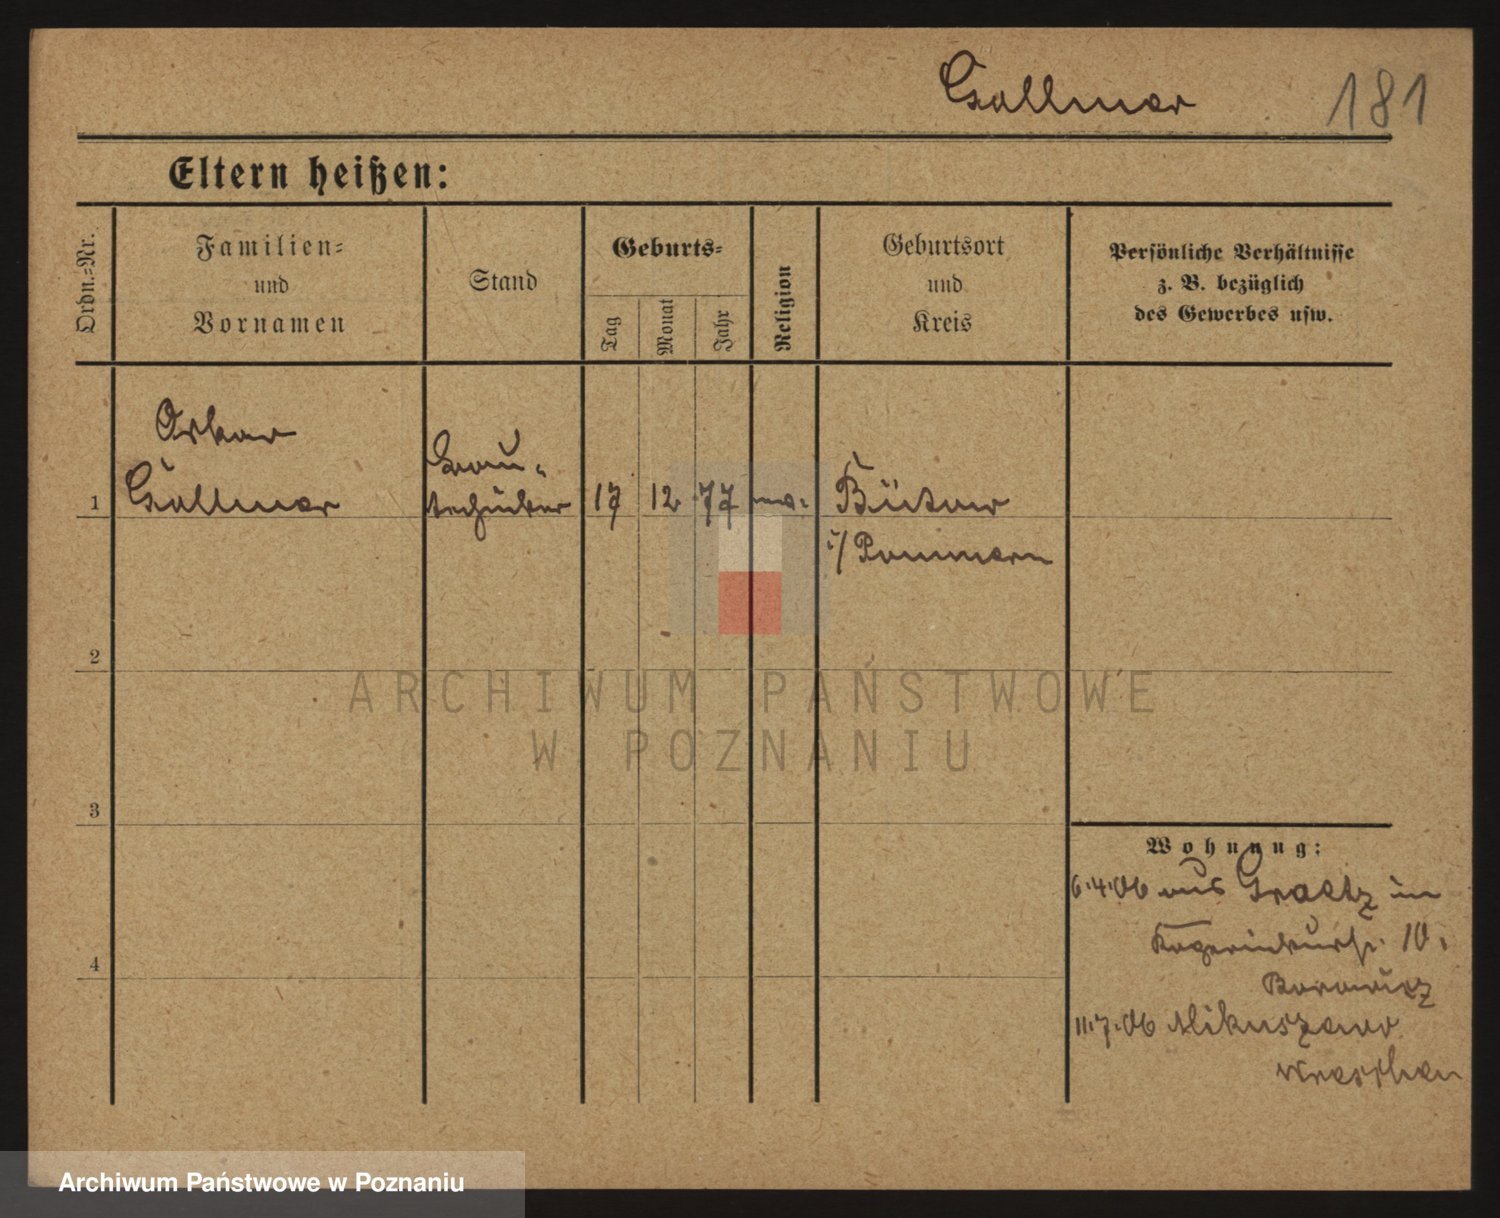 Gollmer 181
Eltern heißen:
Ordn.=Nr.
Familien=
und
Vornamen
Stand
Geburts=
Tag
Monat
Jahr
Religion
Geburtsort
und
Kreis
Persönliche Verhältnisse
z. B. bezüglich
des Gewerbes usw.
Oskar
Gollmer
Bau-
techniker
1 17 12 77
Bütow
i/ Pommern
2
3
4
Wohnung:
6.4.06 aus Graetz in
10.
11.7.06 Mikuszewo
Wreschen
ARCHIWUM PAŃSTWOWE
W POZNANIU
Archiwum Państwowe w Poznaniu